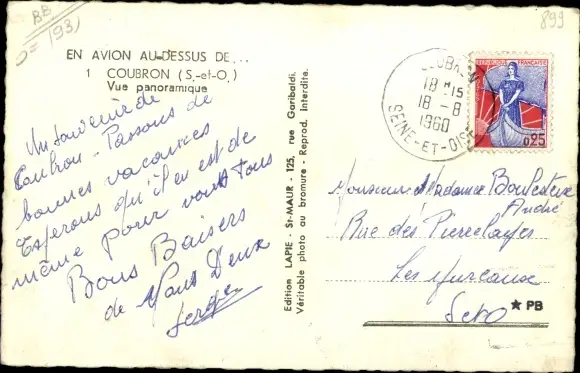 BB
(93)
899
EN AVION AU-DESSUS DE...
1 COUBRON (S.-et-O.)
Vue panoramique
Un souvenir de
Coubron - Passons de
bonnes vacances
Esperons qu'il en est de
même pour vous Tous
Bons Baisers
de Nous Deux
Serge
Edition LAPIE - St-MAUR - 125, rue Garibaldi.
Véritable photo au bromure - Reprod. Interdite.
COUBRON
18 H 15
18 - 8
1960
SEINE-ET-OISE
REPUBLIQUE FRANÇAISE
0,25
Monsieur Madame
André
Rue des Pierrelayes
Les Mureaux
S et O
★ PB